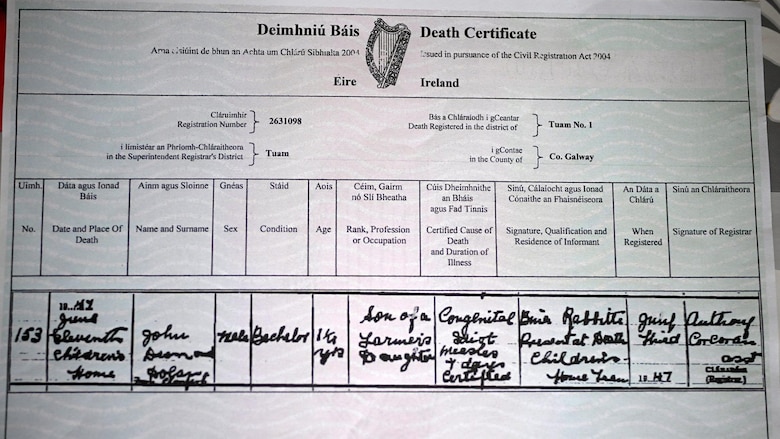 Deimhniú Báis
Death Certificate
Arna eisiúint de bhun an Achta um Chlárú Sibhialta 2004
Issued in pursuance of the Civil Registration Act 2004
Éire
Ireland
Cláruimhir
Registration Number
2631098
Bás a Chláraíodh i gCeantar
Death Registered in the district of
Tuam No. 1
i limistéar an Phríomh-Chláraitheora
in the Superintendent Registrar's District
Tuam
i gContae
in the County of
Co. Galway
Uimh.
No.
Dáta agus Ionad
Báis
Date and Place Of
Death
Ainm agus Sloinne
Name and Surname
Gnéas
Sex
Stáid
Condition
Aois
Age
Céim, Gairm
nó Slí Bheatha
Rank, Profession
or Occupation
Cúis Dheimhnithe
an Bháis
agus Fad Tinnis
Certified Cause of
Death
and Duration of
Illness
Síniú, Cáilíocht agus Ionad
Cónaithe an Fhaisnéiseora
Signature, Qualification and
Residence of Informant
An Dáta a
Chlárú
When
Registered
Síniú an Chláraitheora
Signature of Registrar
153
19..47
June
Eleventh
Children's
Home
John
Desmond
Dolan
Male
Bachelor
1¼
yrs
Son of a
Farmer's
Daughter
Congenital
Idiot
Measles
7 days
Certified
Rabbitte
Present at Death
Children's
Home Tuam
Third
19.47
Anthony
Corcoran
asst
(Registrar)